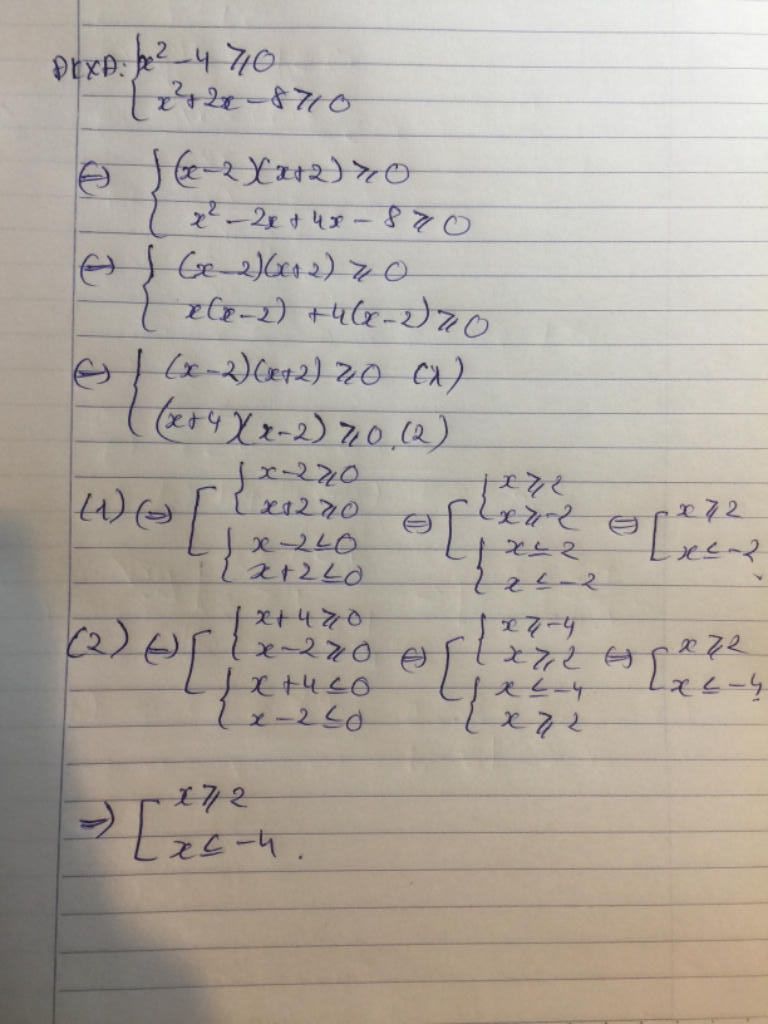 ĐKXĐ: { x² - 4 ⩾ 0
{ x² + 2x - 8 ⩾ 0
⇔ { (x-2)(x+2) ⩾ 0
{ x² - 2x + 4x - 8 ⩾ 0
⇔ { (x-2)(x+2) ⩾ 0
{ x(x-2) + 4(x-2) ⩾ 0
⇔ { (x-2)(x+2) ⩾ 0 (1)
{ (x+4)(x-2) ⩾ 0. (2)
(1) ⇔ [ { x-2 ⩾ 0 ⇔ [ { x ⩾ 2 ⇔ [ x ⩾ 2
{ x+2 ⩾ 0 { x ⩾ -2
{ x-2 ≤ 0 { x ≤ 2 x ≤ -2
{ x+2 ≤ 0 { x ≤ -2
(2) ⇔ [ { x+4 ⩾ 0 ⇔ [ { x ⩾ -4 ⇔ [ x ⩾ 2
{ x-2 ⩾ 0 { x ⩾ 2
{ x+4 ≤ 0 { x ≤ -4 x ≤ -4
{ x-2 ≤ 0 { x ⩾ 2
⇒ [ x ⩾ 2
x ≤ -4.